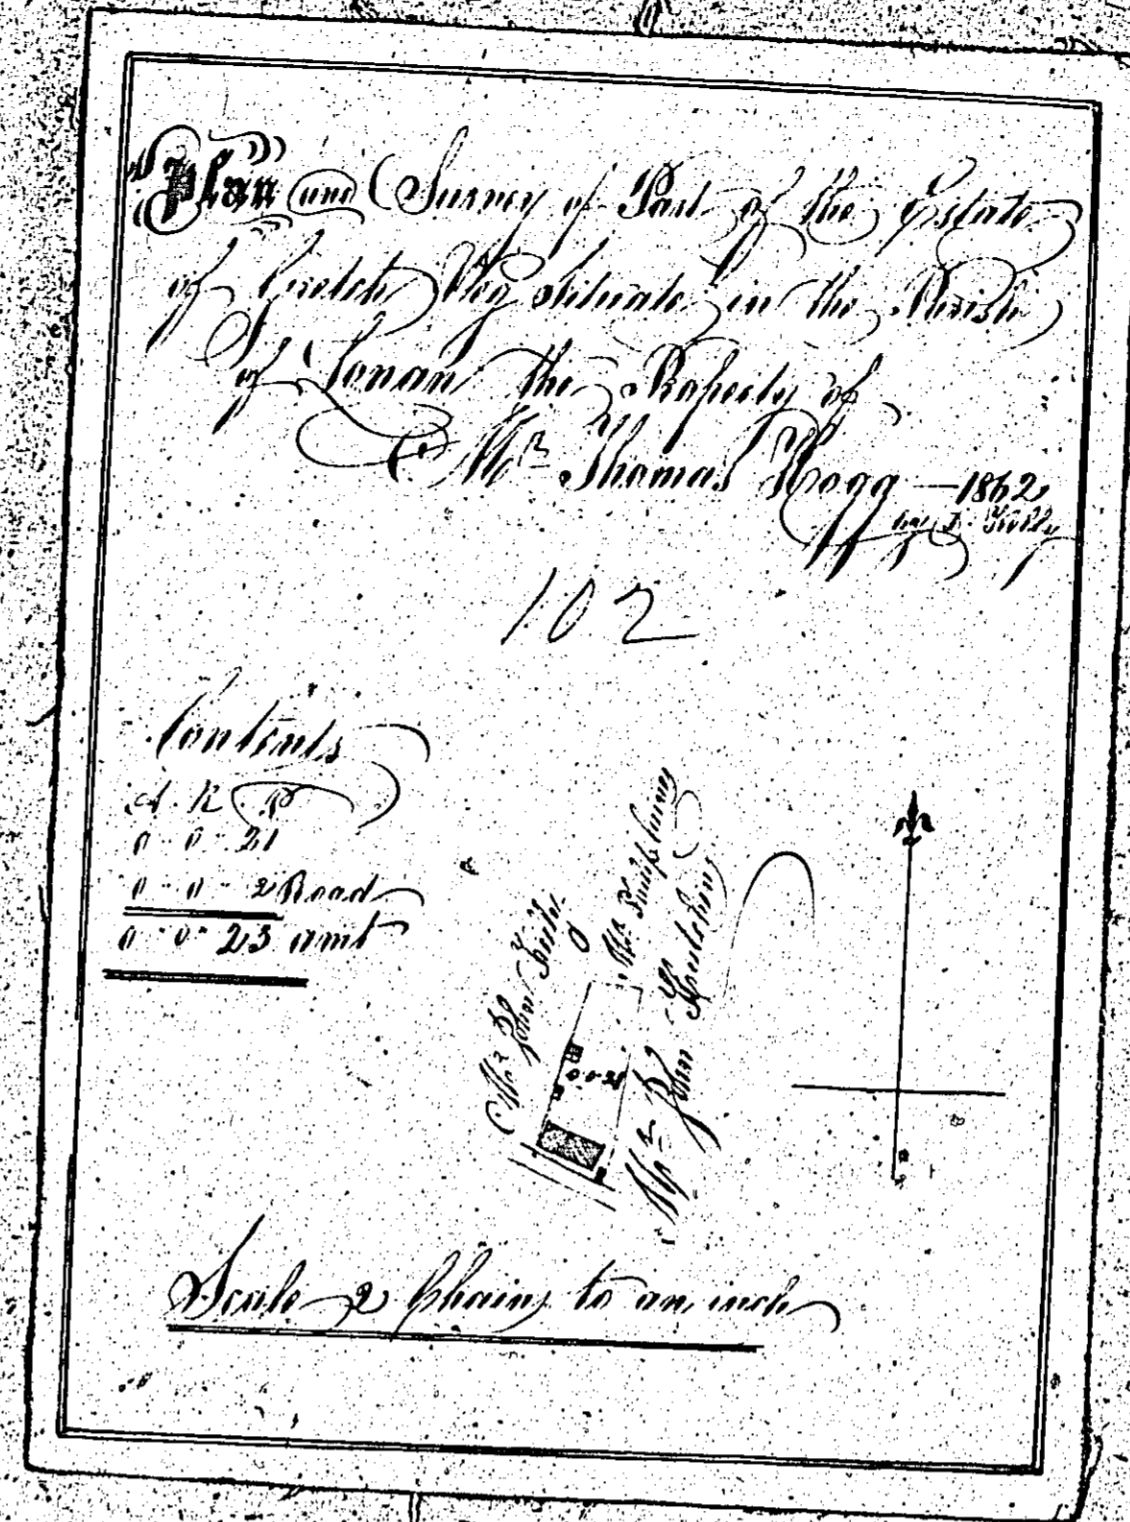 Plan and Survey of Part of the Estate
of Gretch Veg situate in the Parish
of Lonan the Property of
Mr Thomas Hogg — 1862
by
102
Contents
A. R. P
0 - 0 - 21
0 - 0 - 2 Road
0 - 0 - 23 amt
Mr John
Mr
Mr John
0-0-21
Scale 2 Chains to an inch